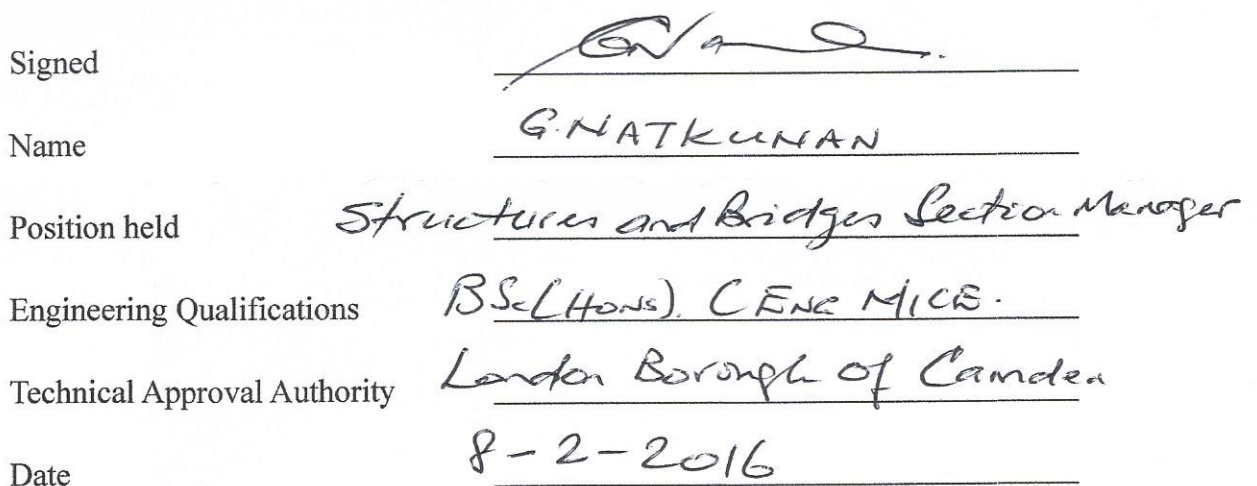 Signed
Name G. NATKUNAN
Position held Structures and Bridges Section Manager
Engineering Qualifications BSc(Hons). CEng MICE.
Technical Approval Authority London Borough of Camden
Date 8-2-2016